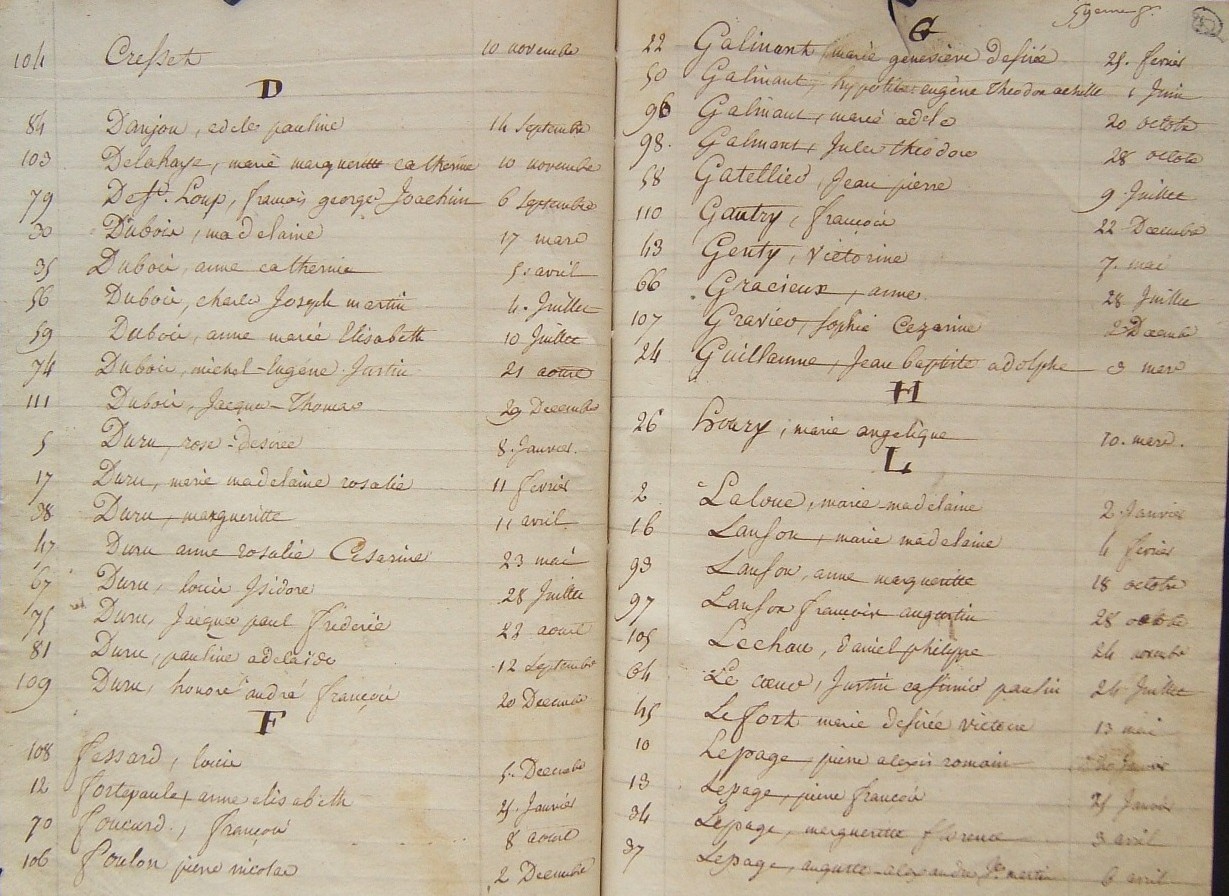 104 Cresset 10 novembre
D
84 Danjou, edele pauline 14 Septembre
103 Delahaye, marie margueritte catherine 10 novembre
79 De St. Loup, françois george Joachim 6 Septembre
30 Dubois, madelaine 17 mars
35 Dubois, anne catherine 5. avril
56 Dubois, charles Joseph martin 4. Juillet
59 Dubois, anne marie Elisabeth 10 Juillet
74 Dubois, michel-Eugéne Justin 21 aoust
111 Dubois, Jacques-Thomas 29 Decembre
5 Duru, rose-desirée 8. Janvier.
17 Duru, marie madelaine rosalie 11 fevrier
38 Duru, margueritte 11 avril
47 Duru anne rosalie Cesarine 23 mai
67 Duru, louis Isidore 28 Juillet
75 Duru, Jacques paul frederic 22 aoust
81 Duru, pauline adelaide 12 Septembre
109 Duru, honoré andré françois 20 Decembre
F
108 fessard, louis 5. Decembre
12 fortepaule, anne elisabeth 25 Janvier
70 foucard., françois 8 aoust
106 foulon pierre nicolas 2 Decembre
G
22 Galinant, marie geneviève desirée 25. fevrier
50 Galinant, hypolite eugène Theodore achille 1 Juin
96 Galinant, marie adele 20 octobre
98. Galinant, Jules theodore 28 octobre
58 Gatellier, Jean pierre 9. Juillet
110 Gautry, françois 22 Decembre
43 Genty, victorine 7. mai
66 Gracieux, anne. 28 Juillet
107 Gravier, Sophie Cezarine 2 Decembre
24 Guillaume, Jean baptiste adolphe 3 mars
H
26 houry, marie angelique 10. mars.
L
2 Laloue, marie madelaine 2. Janvier
16 Lanson, marie madelaine 4 fevrier
93 Lanson, anne margueritte 18 octobre
97 Lanson françois augustin 28 octobre
105 Lechau, daniel philippe 24 novembre
64 Le cœur, Justin casimir paulin 24. Juillet
45 Lefort marie desirée victoire 13 mai
10 Lepage, pierre alexis romain Janvier
13 Lepage, pierre françois 25 Janvier
34 Lepage, margueritte florence 3 avril
37 Lepage, auguste-alexandre St. martin 6 avril